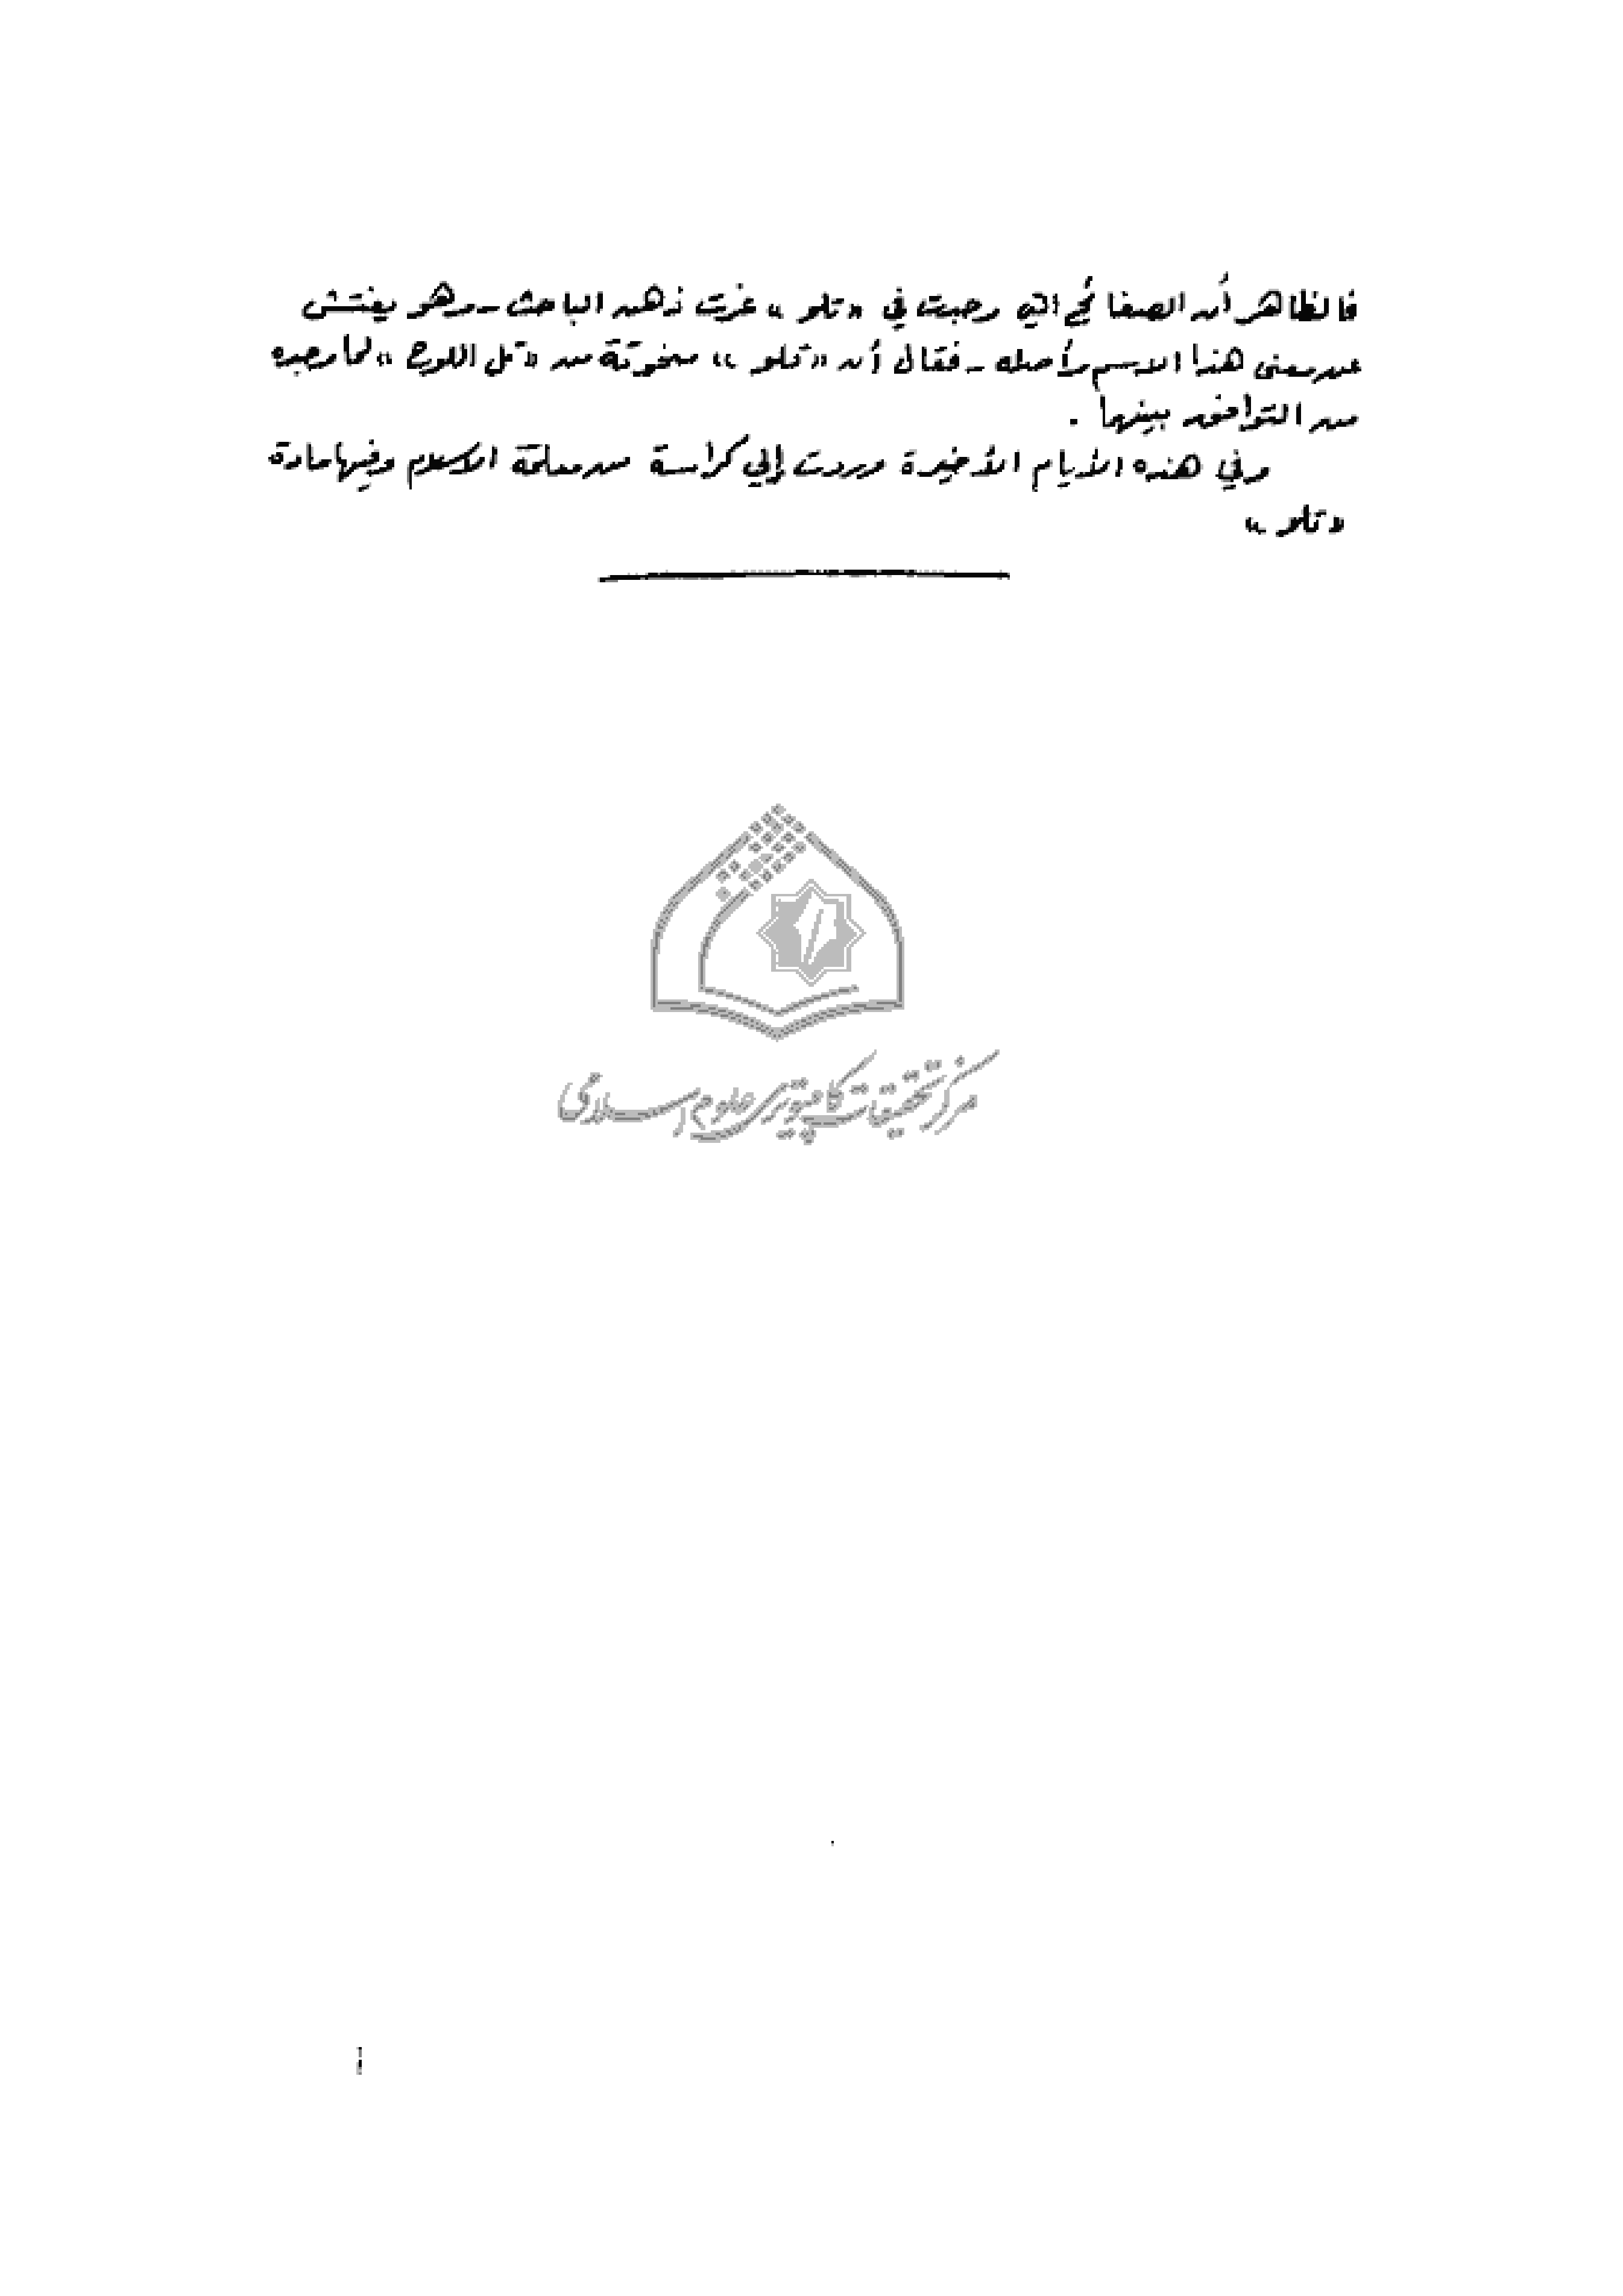 فالظاهر أن الصفائح التي وجدت في «تلو» غزت ذهن الباحث - وهو يفتش
عن معنى هذا الاسم وأصله - فقال أن «تلو» منحوتة من «تل اللوح» لما وجده
من التوافق بينهما .
وفي هذه الأيام الأخيرة وردت إلي كراسة من معلمة الاسلام وفيها مادة
«تلو»
مركز تحقيقات كامپيوترى علوم اسلامى